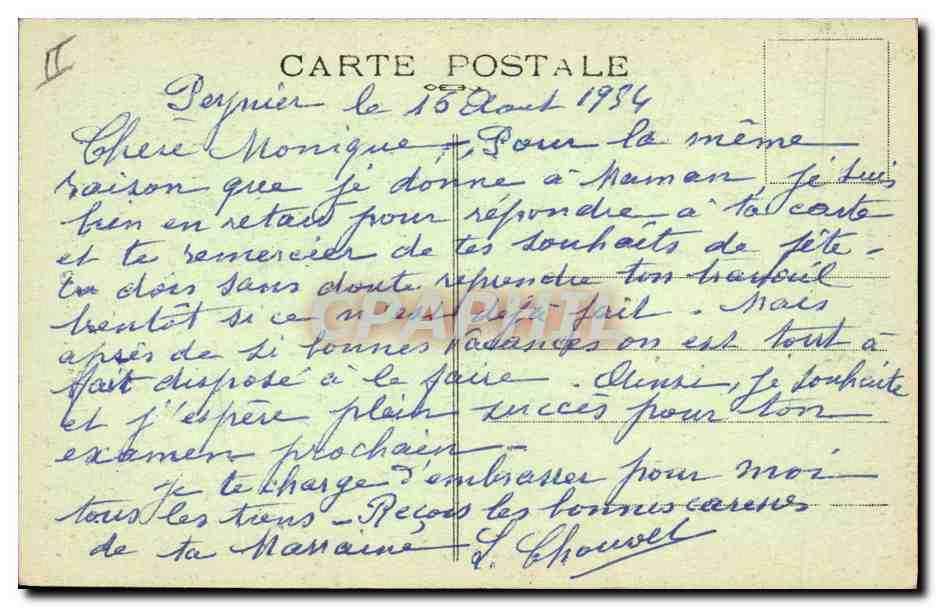 II
CARTE POSTALE
le 16 Aout 1934
Chère Monique -, Pour la même
raison que je donne à Maman je suis
bien en retard pour répondre à ta carte
et te remercier de tes souhaits de fête -
Tu dois sans doute reprendre ton travail
bientôt si ce n'est déjà fait. Mais
après de si bonnes vacances on est tout à
fait disposé à le faire. Ainsi, je souhaite
et j'espère plein succès pour ton
examen prochain -
je te charge d'embrasser pour moi
tous les tiens - Reçois les bonnes caresses
de ta Marraine L. Chouvet
CPAPHIL